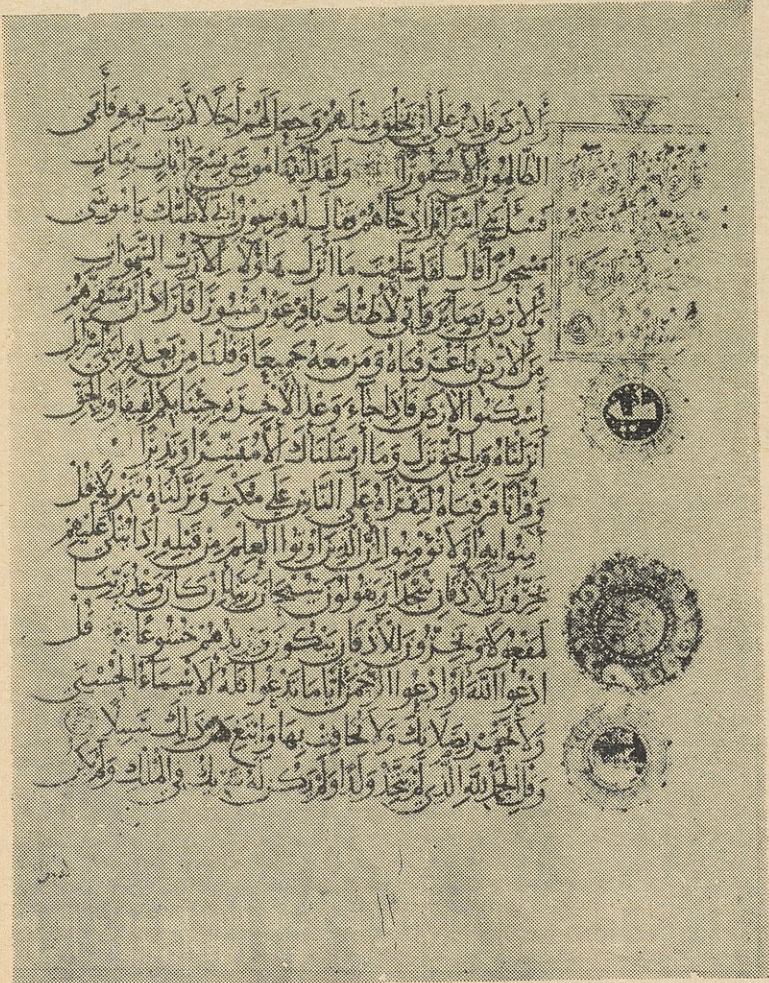 والأرض قادر على أن يخلق مثلهم وجعل لهم أجلا لا ريب فيه فأبى
الظالمون إلا كفورا ولقد آتينا موسى تسع آيات بينات
فسئل بني إسرائيل إذ جاءهم فقال له فرعون إني لأظنك يا موسى
مسحورا قال لقد علمت ما أنزل هاؤلاء إلا رب السموات
والأرض بصائر وإني لأظنك يا فرعون مثبورا فأراد أن يستفزهم
من الأرض فأغرقناه ومن معه جميعا وقلنا من بعده لبني إسرائيل
اسكنوا الأرض فإذا جاء وعد الآخرة جئنا بكم لفيفا وبالحق
أنزلناه وبالحق نزل وما أرسلناك إلا مبشرا ونذيرا
وقرآنا فرقناه لتقرأه على الناس على مكث ونزلناه تنزيلا قل
آمنوا به أو لا تؤمنوا إن الذين أوتوا العلم من قبله إذا يتلى عليهم
يخرون للأذقان سجدا ويقولون سبحان ربنا إن كان وعد ربنا
لمفعولا ويخرون للأذقان يبكون ويزيدهم خشوعا قل
ادعوا الله أو ادعوا الرحمن أيا ما تدعوا فله الأسماء الحسنى
ولا تجهر بصلاتك ولا تخافت بها وابتغ بين ذلك سبيلا
وقل الحمد لله الذي لم يتخذ ولدا ولم يكن له شريك في الملك ولم يكن